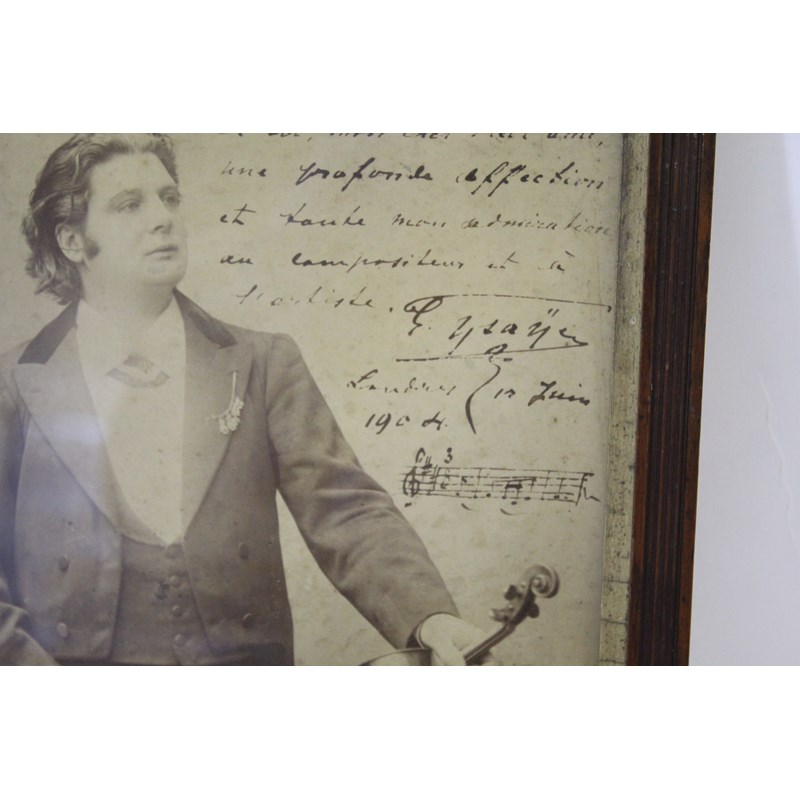 mon cher
une profonde affection
et toute mon admiration
au compositeur et à
l'artiste.
E. Ysaÿe
Londres
Juin
1904.
3